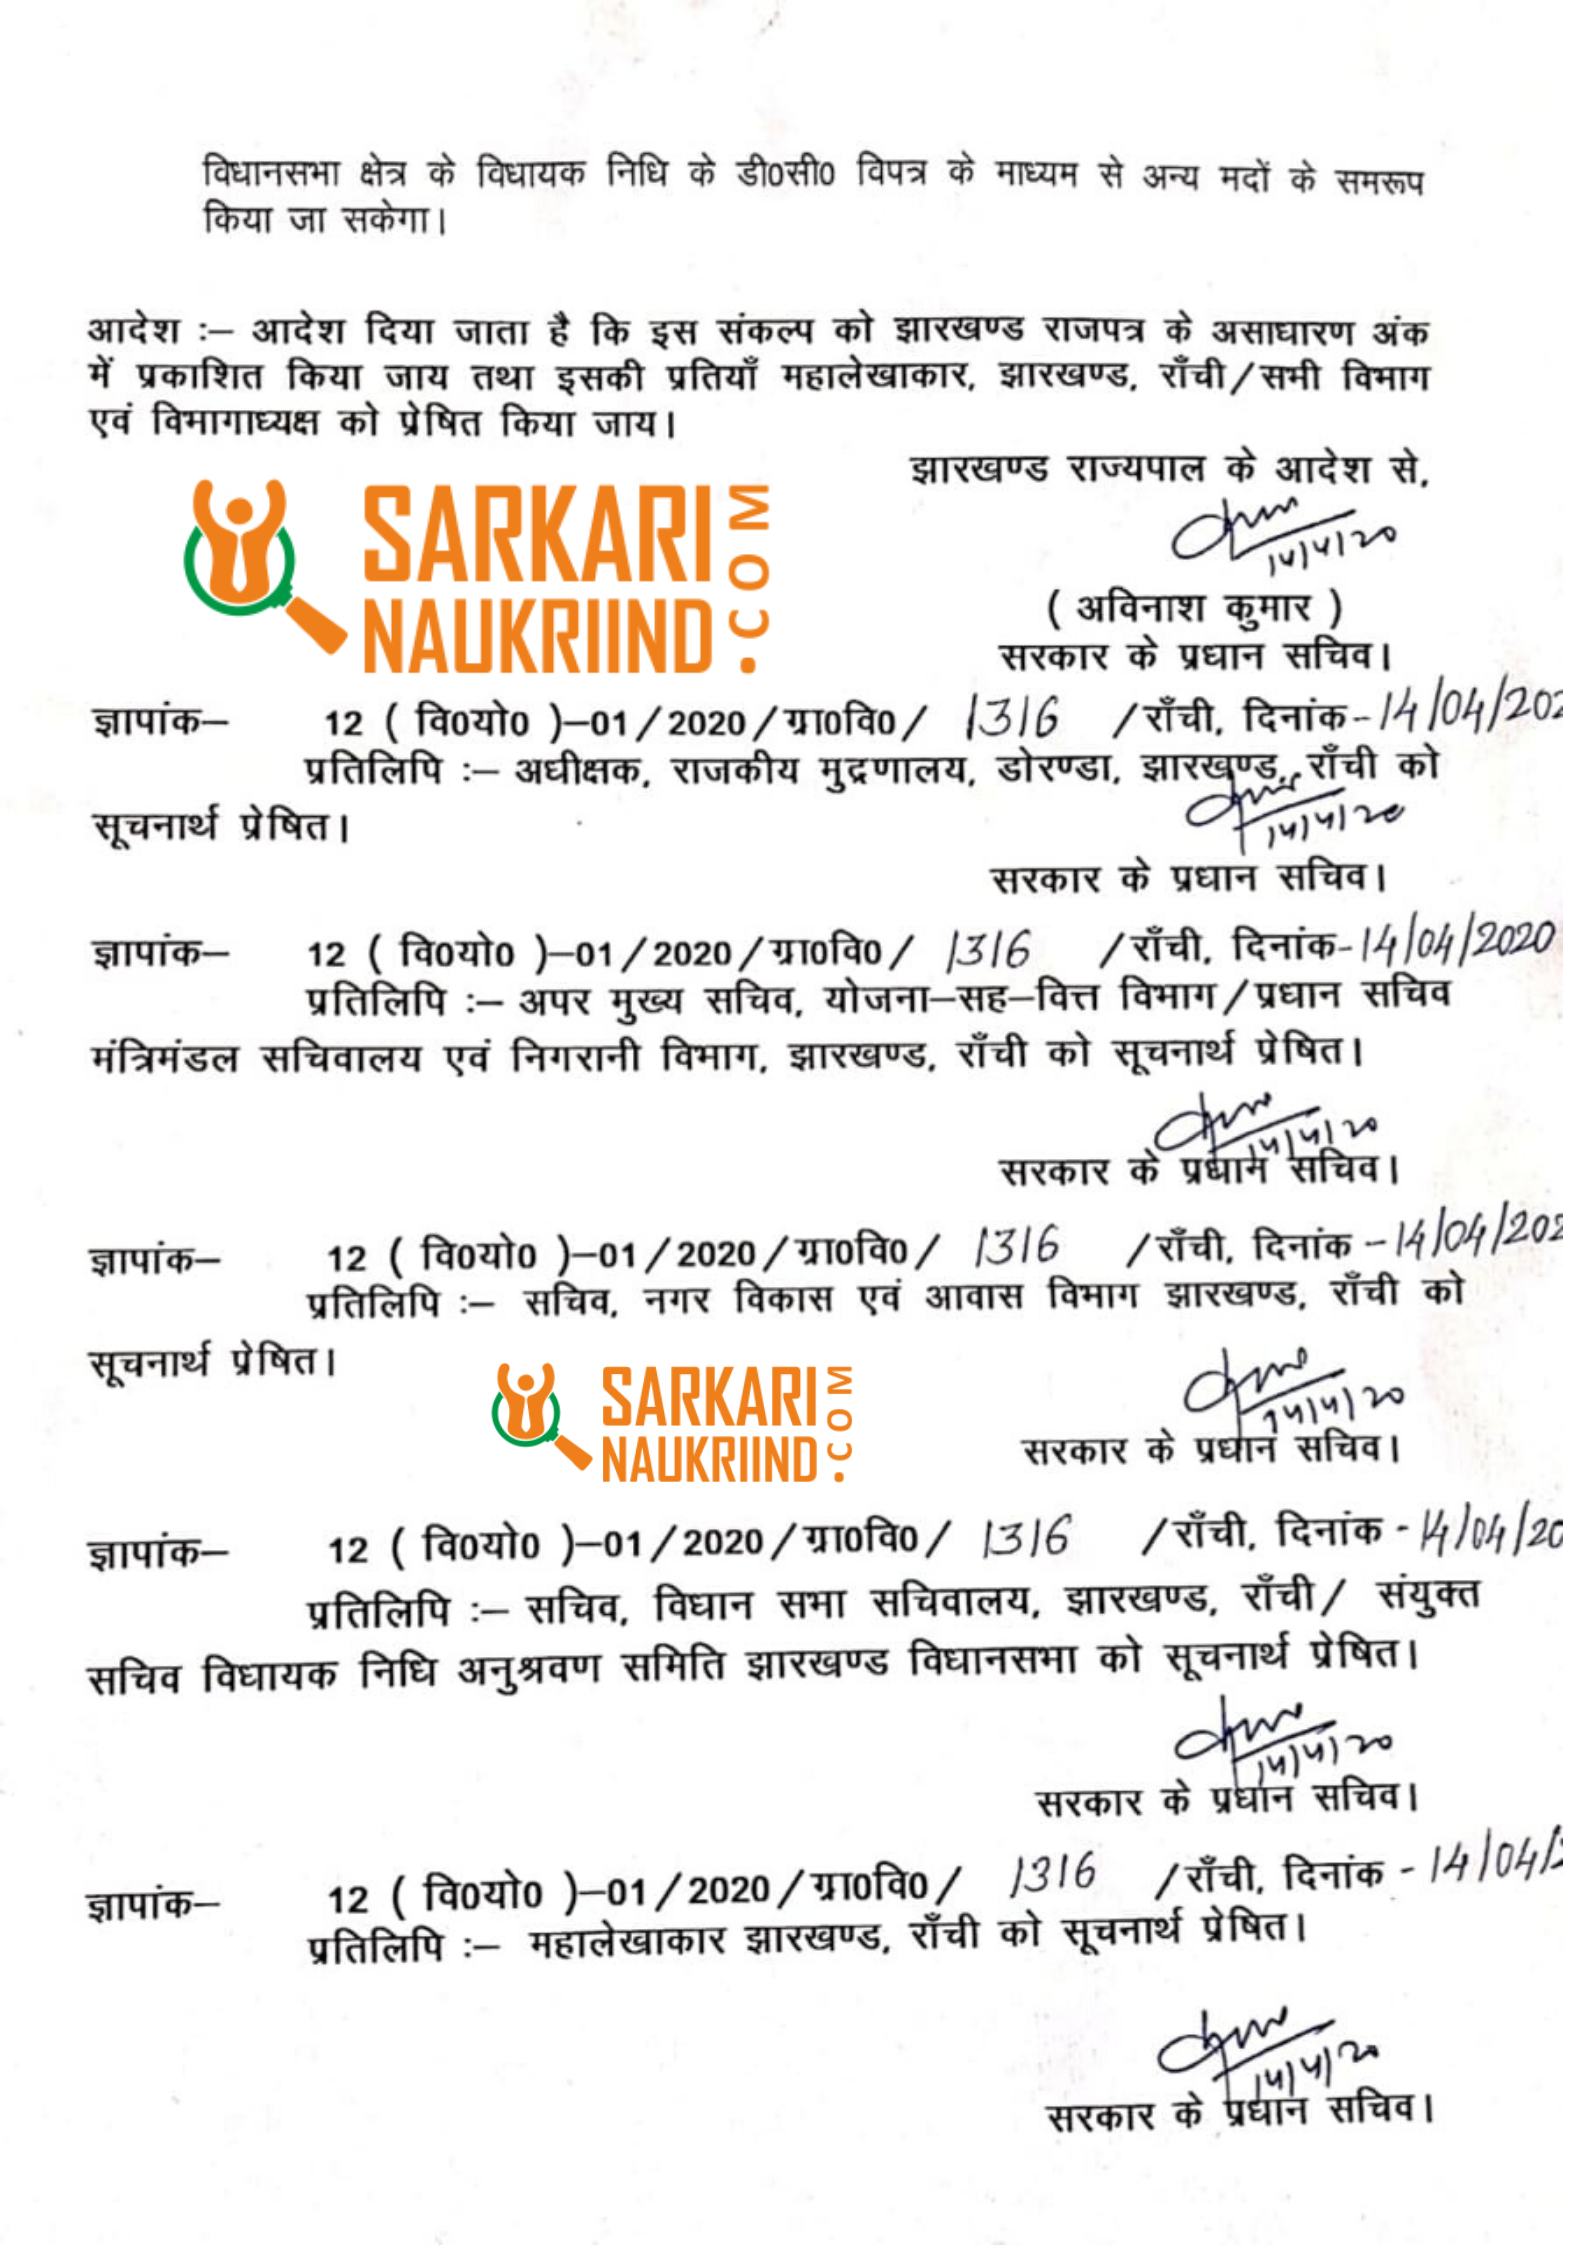 विधानसभा क्षेत्र के विधायक निधि के डी0सी0 विपत्र के माध्यम से अन्य मदों के समरूप
किया जा सकेगा।
आदेश :– आदेश दिया जाता है कि इस संकल्प को झारखण्ड राजपत्र के असाधारण अंक
में प्रकाशित किया जाय तथा इसकी प्रतियाँ महालेखाकार, झारखण्ड, राँची/सभी विभाग
एवं विभागाध्यक्ष को प्रेषित किया जाय।
झारखण्ड राज्यपाल के आदेश से,
SARKARI
NAUKRIIND
.COM
14/4/20
( अविनाश कुमार )
सरकार के प्रधान सचिव।
ज्ञापांक– 12 ( वि0यो0 )–01/2020/ग्रा0वि0/ 1316 /राँची, दिनांक-14/04/202
प्रतिलिपि :– अधीक्षक, राजकीय मुद्रणालय, डोरण्डा, झारखण्ड, राँची को
सूचनार्थ प्रेषित।
14/4/20
सरकार के प्रधान सचिव।
ज्ञापांक– 12 ( वि0यो0 )–01/2020/ग्रा0वि0/ 1316 /राँची, दिनांक-14/04/2020
प्रतिलिपि :– अपर मुख्य सचिव, योजना–सह–वित्त विभाग/प्रधान सचिव
मंत्रिमंडल सचिवालय एवं निगरानी विभाग, झारखण्ड, राँची को सूचनार्थ प्रेषित।
14/4/20
सरकार के प्रधान सचिव।
ज्ञापांक– 12 ( वि0यो0 )–01/2020/ग्रा0वि0/ 1316 /राँची, दिनांक -14/04/202
प्रतिलिपि :– सचिव, नगर विकास एवं आवास विभाग झारखण्ड, राँची को
सूचनार्थ प्रेषित।
SARKARI
NAUKRIIND
.COM
14/4/20
सरकार के प्रधान सचिव।
ज्ञापांक– 12 ( वि0यो0 )–01/2020/ग्रा0वि0/ 1316 /राँची, दिनांक - 14/04/20
प्रतिलिपि :– सचिव, विधान सभा सचिवालय, झारखण्ड, राँची/ संयुक्त
सचिव विधायक निधि अनुश्रवण समिति झारखण्ड विधानसभा को सूचनार्थ प्रेषित।
14/4/20
सरकार के प्रधान सचिव।
ज्ञापांक– 12 ( वि0यो0 )–01/2020/ग्रा0वि0/ 1316 /राँची, दिनांक - 14/04/2
प्रतिलिपि :– महालेखाकार झारखण्ड, राँची को सूचनार्थ प्रेषित।
14/4/20
सरकार के प्रधान सचिव।